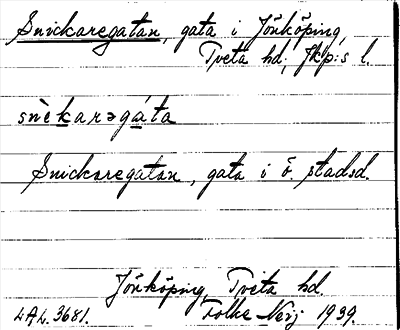 Snickaregatan, gata i Jönköping,
Tveta hd, Jkp:s l.
snèkarəgáta
Snickaregatan, gata i ö. stadsd.
Jönköping, Tveta hd.
LAL. 3681. Folke Neij 1939.